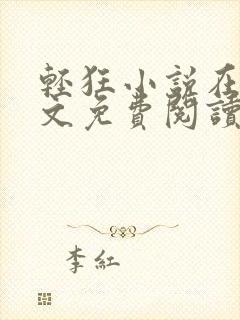 輕狂小說在
文免費閱讀
李紅